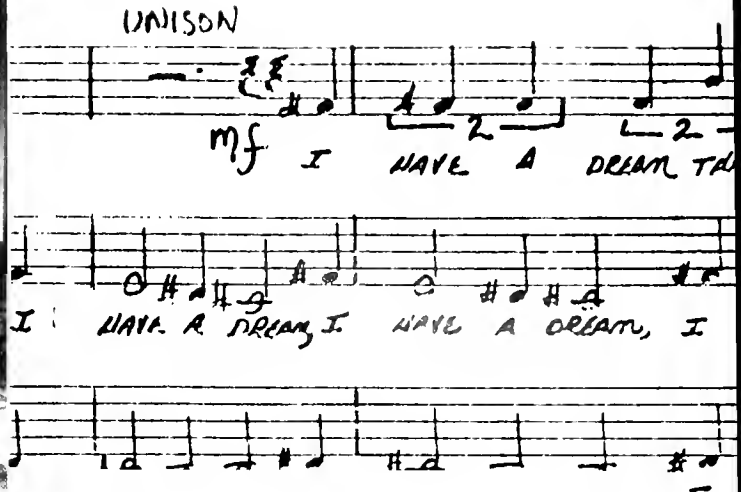 UNISON
mf I HAVE A DREAM
2 2
I HAVE A DREAM, I HAVE A DREAM, I